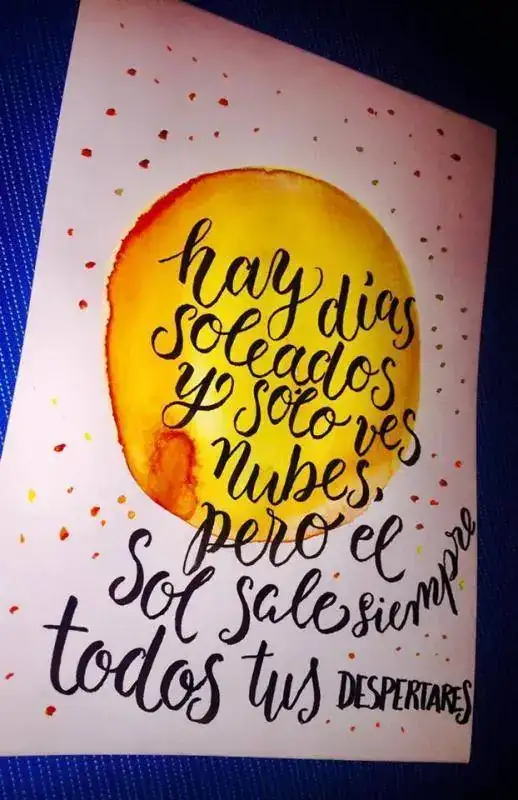 hay días
soleados
y solo ves
nubes,
pero el
sol sale siempre
todos tus DESPERTARES